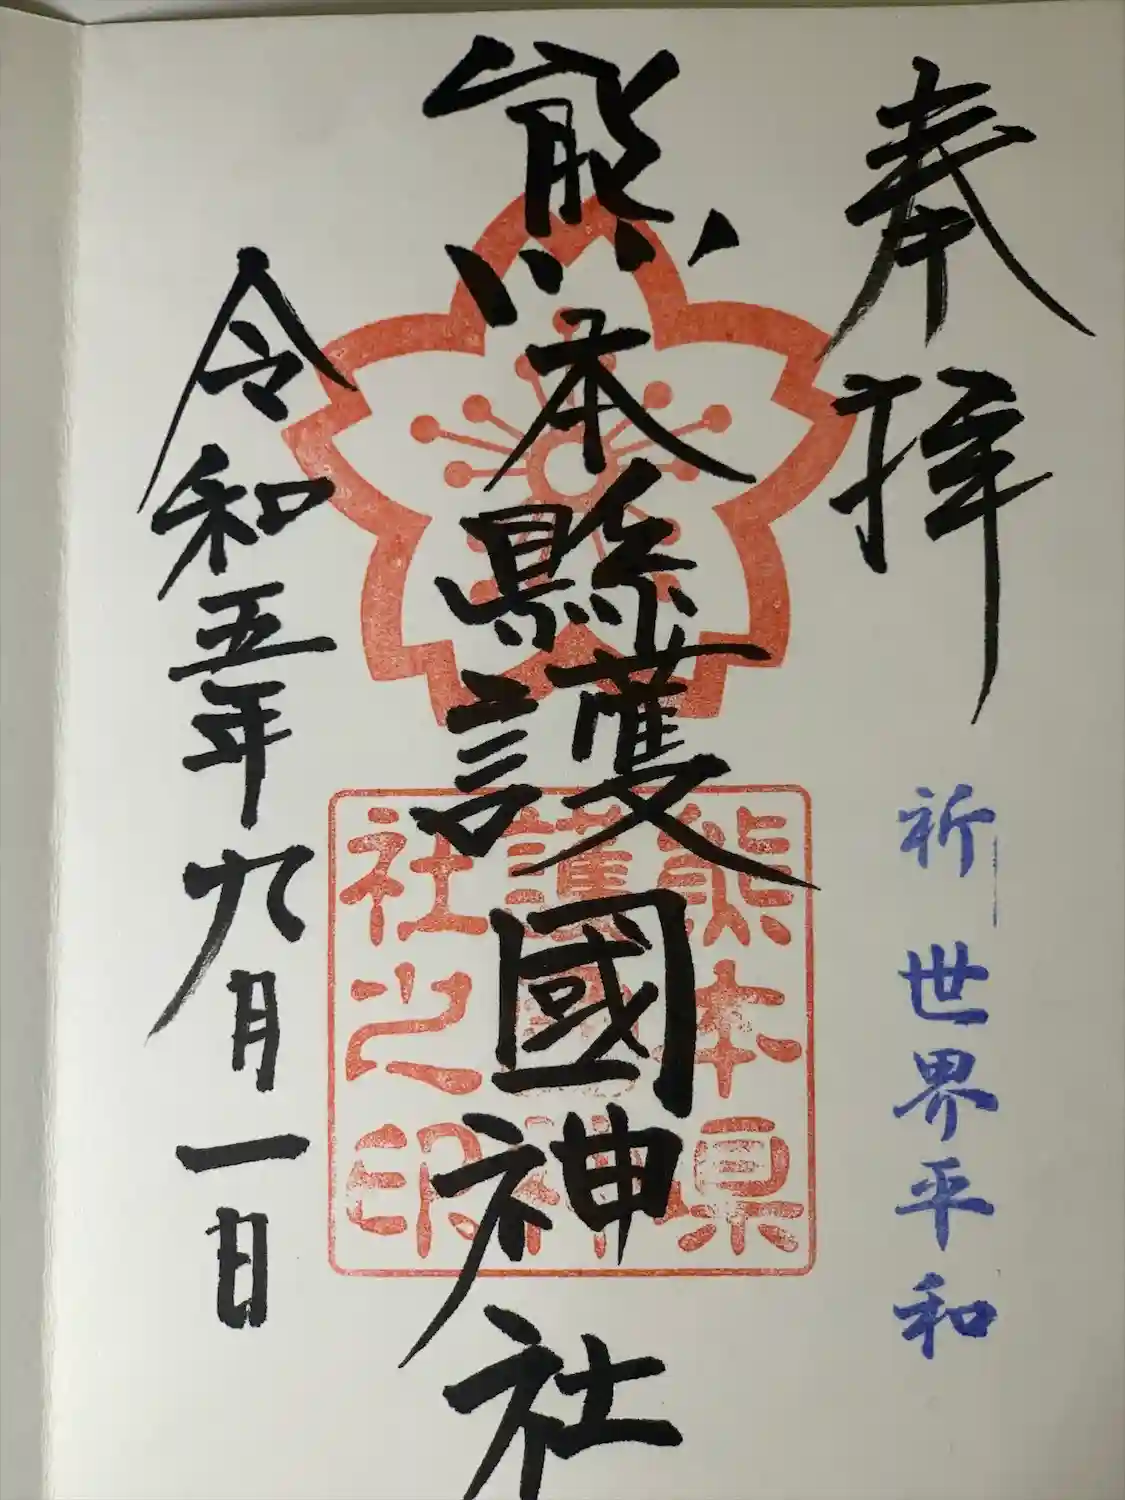 奉拝
祈世界平和
熊本縣護國神社
熊本県
護國神
社之印
令和五年九月一日